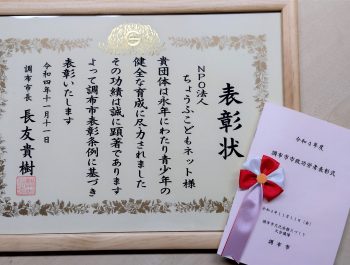 表彰状
NPO法人
ちょうふこどもネット様
貴団体は永年にわたり青少年の
健全な育成に尽力されました
その功績は誠に顕著であります
よって調布市表彰条例に基づき
表彰いたします
令和四年十一月十一日
調布市長 長友貴樹
令和4年度
調布市市政功労者表彰式
令和4年11月11日(金)
調布市文化会館たづくり
調布市